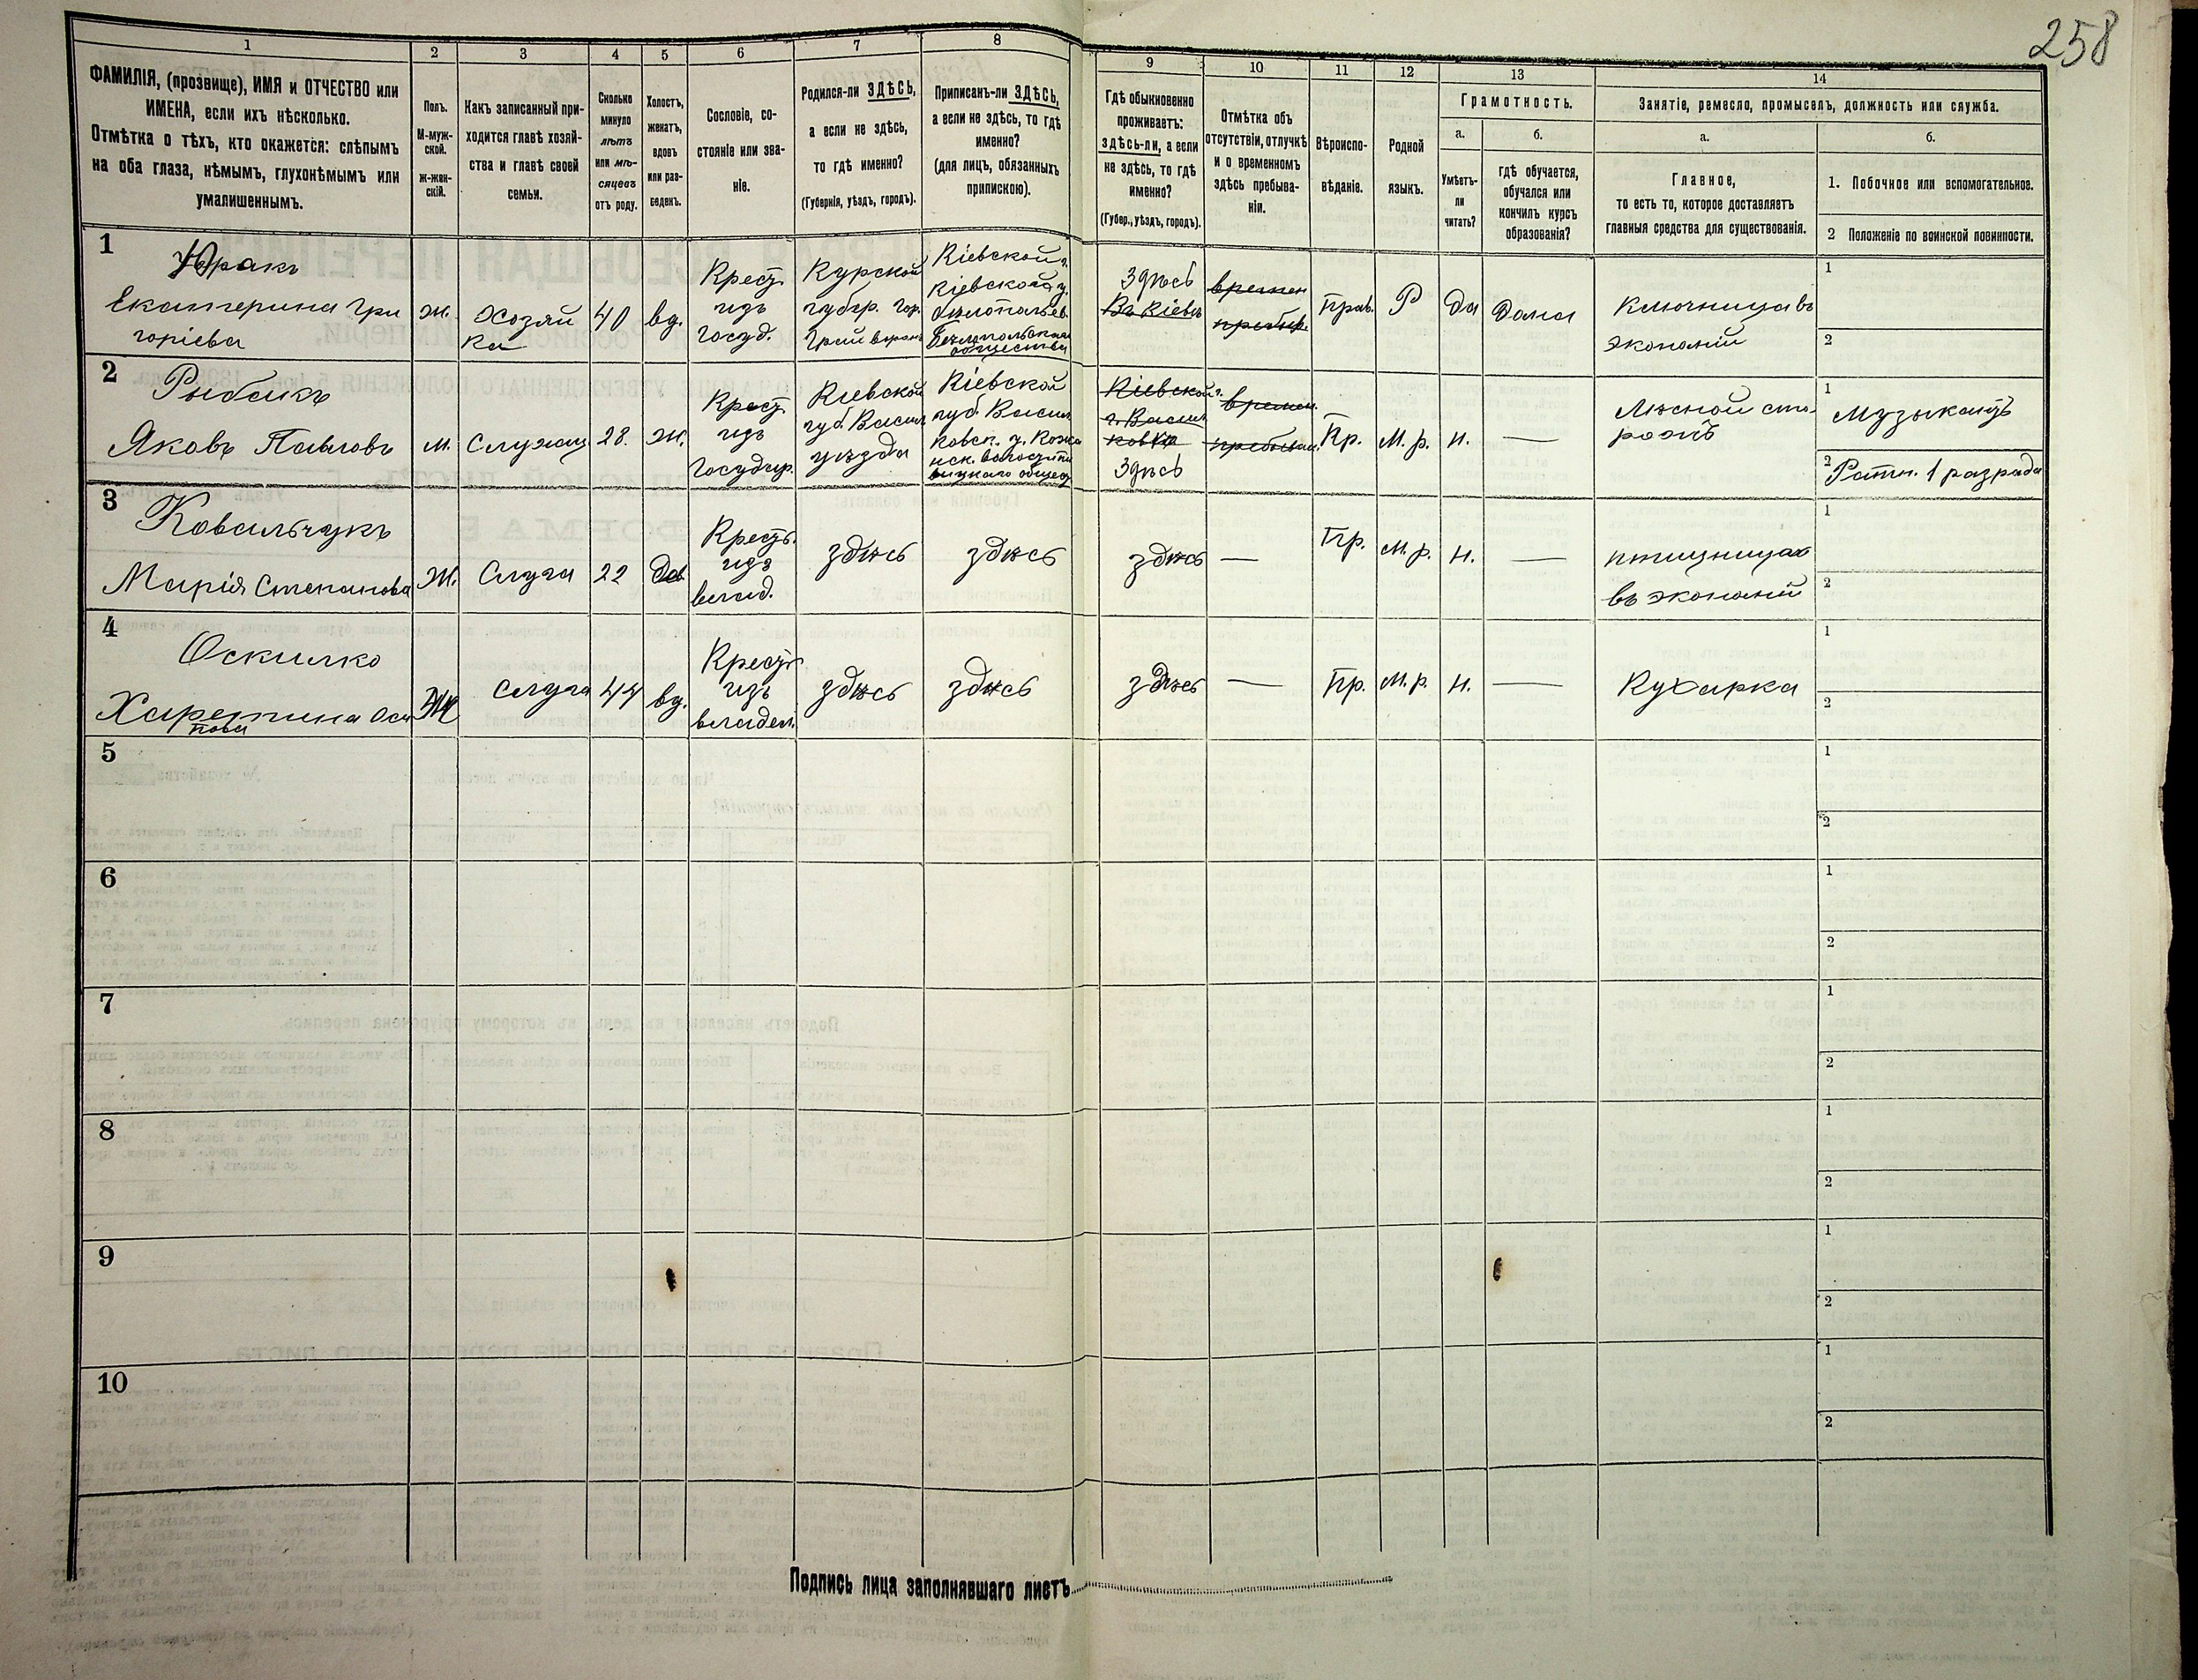 258
1 2 3 4 5 6 7 8 9 10 11 12 13 14
ФАМИЛІЯ, (прозвище), ИМЯ и ОТЧЕСТВО или
ИМЕНА, если ихъ нѣсколько.
Отмѣтка о тѣхъ, кто окажется: слѣпымъ
на оба глаза, нѣмымъ, глухонѣмымъ или
умалишеннымъ.
Полъ.
М-муж-
ской.
ж-жен-
скій.
Какъ записанный при-
ходится главѣ хозяй-
ства и главѣ своей
семьи.
Сколько
минуло
лѣтъ
или мѣ-
сяцевъ
отъ роду.
Холостъ,
женатъ,
вдовъ
или раз-
веденъ.
Сословіе, со-
стояніе или зва-
ніе.
Родился-ли ЗДѢСЬ,
а если не здѣсь,
то гдѣ именно?
(Губернія, уѣздъ, городъ).
Приписанъ-ли ЗДѢСЬ,
а если не здѣсь, то гдѣ
именно?
(для лицъ, обязанныхъ
припискою).
Гдѣ обыкновенно
проживаетъ:
здѣсь-ли, а если
не здѣсь, то гдѣ
именно?
(Губер., уѣздъ, городъ).
Отмѣтка объ
отсутствіи, отлучкѣ
и о временномъ
здѣсь пребыва-
ніи.
Вѣроиспо-
вѣданіе.
Родной
языкъ.
Грамотность.
а.
Умѣетъ-
ли
читать?
б.
гдѣ обучается,
обучался или
кончилъ курсъ
образованія?
Занятіе, ремесло, промыселъ, должность или служба.
а.
Главное,
то есть то, которое доставляетъ
главныя средства для существованія.
б.
1. Побочное или вспомогательное.
2 Положеніе по воинской повинности.
1
Юракъ
Екатерина Гри
горіева
ж.
Хозяй
ка
40
вд.
Крест.
изъ
госуд.
Курской
губер. гор.
Грайворонъ
Кіевской г.
Кіевскаго у.
общества
Здѣсь
Въ Кіевѣ
времен
пребыв.
Прав.
Р
Да
Дома
Ключница въ
экономіи
1
2
2
Рыбакъ
Яковъ Павловъ
м.
Служащ.
28.
ж.
Крест.
изъ
Государ.
Кіевской
губ. Васил
уѣзда
Кіевской
губ. Васил
ковск. у.
Кіевской г.
г. Васил
ковка
Здѣсь
времен.
пребыван.
Пр.
М. р.
н.
—
Лѣсной сто-
рожъ
1
Музыкантъ
2
Ратн. 1 разряда
3
Ковальчукъ
Марія Степанова
Ж.
Слуга
22
Дѣв.
Крест.
изъ
влад.
здѣсь
здѣсь
здѣсь
—
Пр.
М. р.
н.
—
птичница
въ экономіи
1
2
4
Оскилко
Харетина Оси
пова
Ж
Слуга
44
вд.
Крест.
изъ
владел.
здѣсь
здѣсь
здѣсь
—
Пр.
М. р.
н.
—
Кухарка
1
2
5
1
2
6
1
2
7
1
2
8
1
2
9
1
2
10
1
2
Подпись лица заполнявшаго листъ